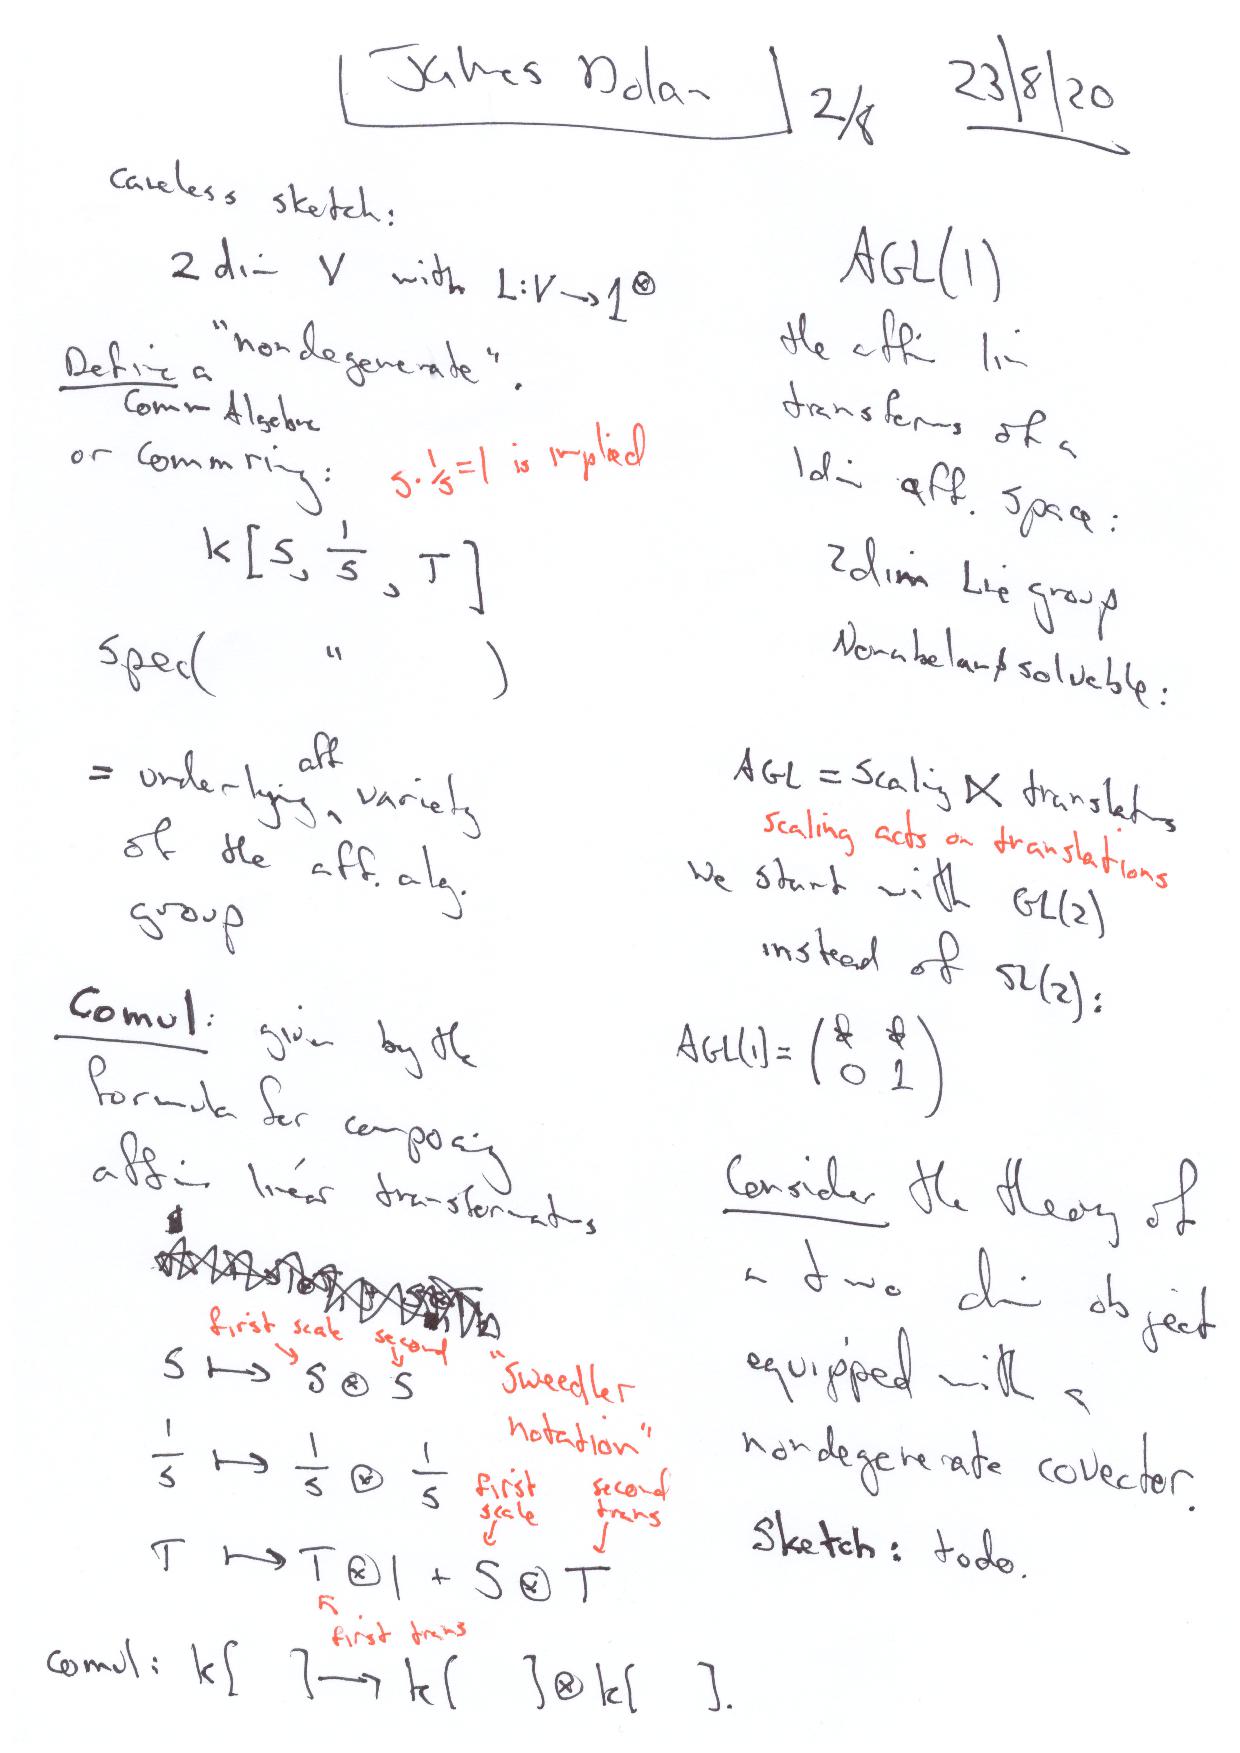 James Dolan
2/8
23/8/20
Careless sketch:
2 dim V with L:V→1⊗
"nondegenerate".
Define a
Comm Algebra
or Comm ring:
S·1/S=1 is implied
k[S, 1/S, T]
Spec( " )
= underlying aff variety
of the aff. alg.
group
Comul: given by the
formula for composing
affine linear transformations
first scale second
S ↦ S ⊗ S
"Sweedler
notation"
1/S ↦ 1/S ⊗ 1/S
first scale
second trans
T ↦ T⊗1 + S⊗T
first trans
comul: k[ ]→k[ ]⊗k[ ].
AGL(1)
the affin lin
transforms of a
1dim aff. space:
2dim Lie group
Nonabelian & solvable:
AGL = Scaling ⋉ translations
scaling acts on translations
We start with GL(2)
instead of SL(2):
AGL(1) = (* *
0 1)
Consider the theory of
a two dim object
equipped with a
nondegenerate covector.
Sketch: todo.